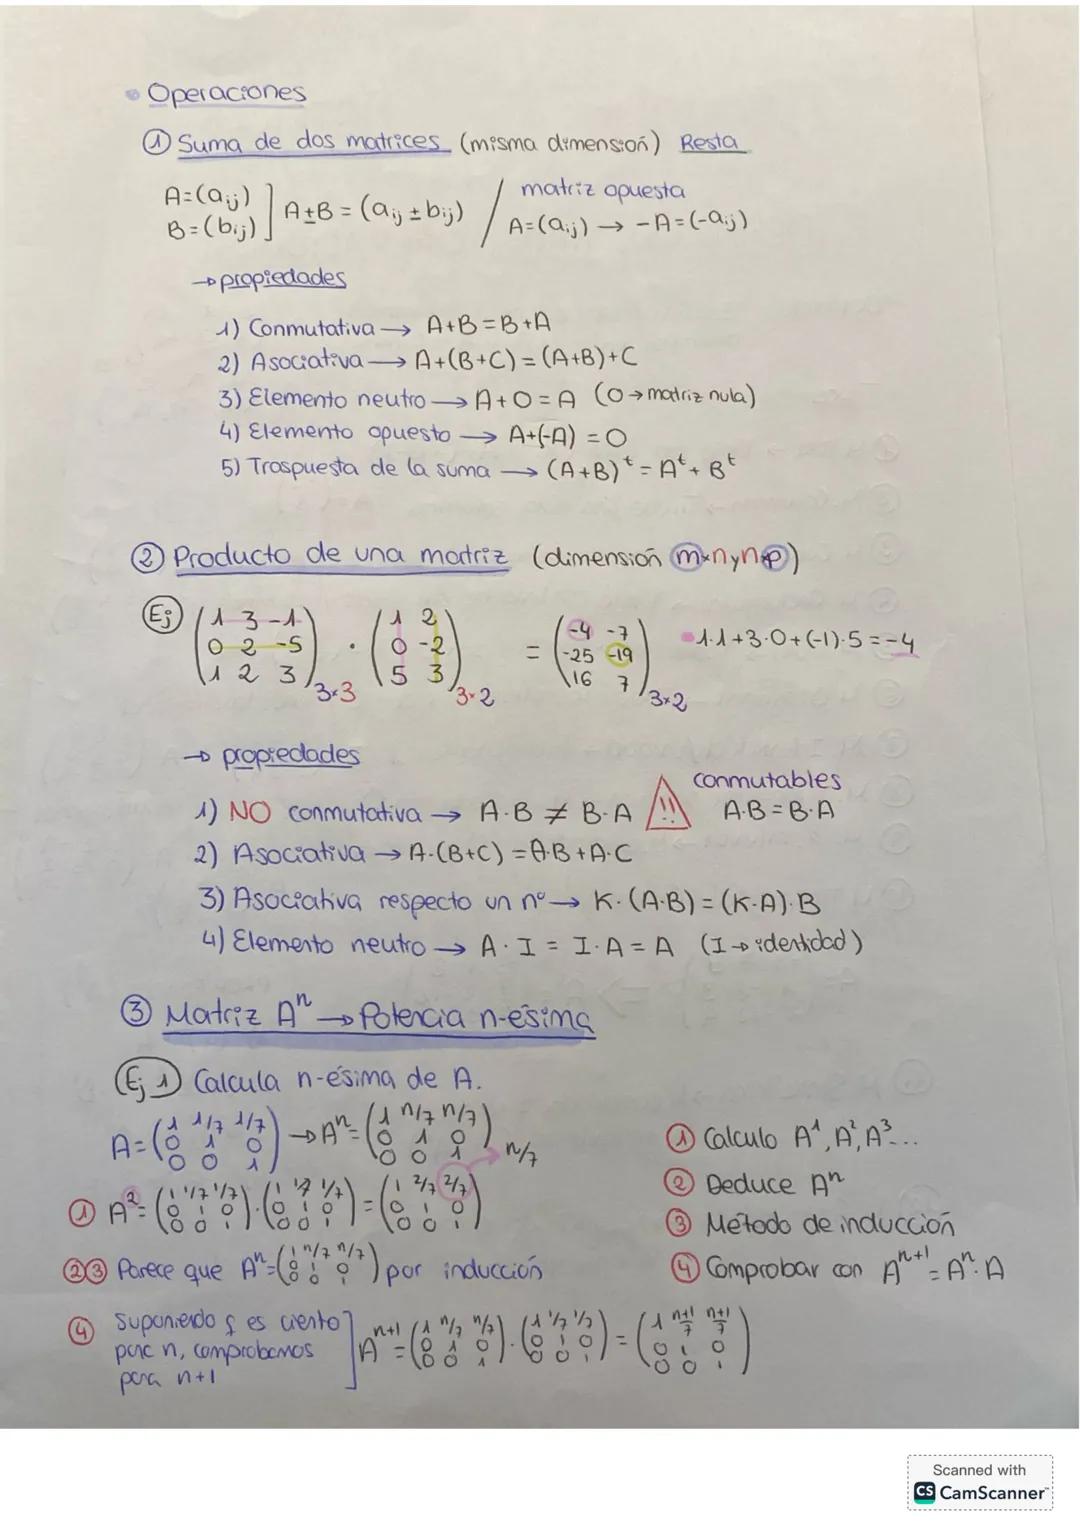 • Operaciones
① Suma de dos matrices (misma dimensión) Resta
A=(aij)
B=(bij) ] A±B = (aij ± bij) / matriz opuesta
A=(aij) → -A=(-aij)
→ propiedades
1) Conmutativa → A+B=B+A
2) Asociativa → A+(B+C) = (A+B)+C
3) Elemento neutro → A+O=A (O→matriz nula)
4) Elemento opuesto → A+(-A) = O
5) Traspuesta de la suma → (A+B)^t = A^t + B^t
② Producto de una matriz (dimensión m×n y n×p)
Ej (1 3 -1 / 0 2 -5 / 1 2 3)3×3 · (1 2 / 0 -2 / 5 3)3×2 = (-4 -7 / -25 -19 / 16 7)3×2 • 1·1+3·0+(-1)·5=-4
→ propiedades
1) NO conmutativa → A·B ≠ B·A !! conmutables A·B=B·A
2) Asociativa → A·(B+C) = A·B+A·C
3) Asociativa respecto un nº → K·(A·B) = (K·A)·B
4) Elemento neutro → A·I = I·A = A (I→identidad)
③ Matriz A^n → Potencia n-ésima
Ej 1) Calcula n-ésima de A.
A=(1 1/7 1/7 / 0 1 0 / 0 0 1) → A^n=(1 n/7 n/7 / 0 1 0 / 0 0 1) n/7
① A^2=(1 1/7 1/7 / 0 1 0 / 0 0 1)·(1 1/7 1/7 / 0 1 0 / 0 0 1)=(1 2/7 2/7 / 0 1 0 / 0 0 1)
②③ Parece que A^n=(1 n/7 n/7 / 0 1 0 / 0 0 1) por inducción
④ Suponiendo q es ciento
para n, comprobamos
para n+1 ] A^n+1=(1 n/7 n/7 / 0 1 0 / 0 0 1)·(1 1/7 1/7 / 0 1 0 / 0 0 1)=(1 n+1/7 n+1/7 / 0 1 0 / 0 0 1)
① Calculo A^1, A^2, A^3...
② Deduce A^n
③ Método de inducción
④ Comprobar con A^n+1=A^n·A
Scanned with
CS CamScanner™